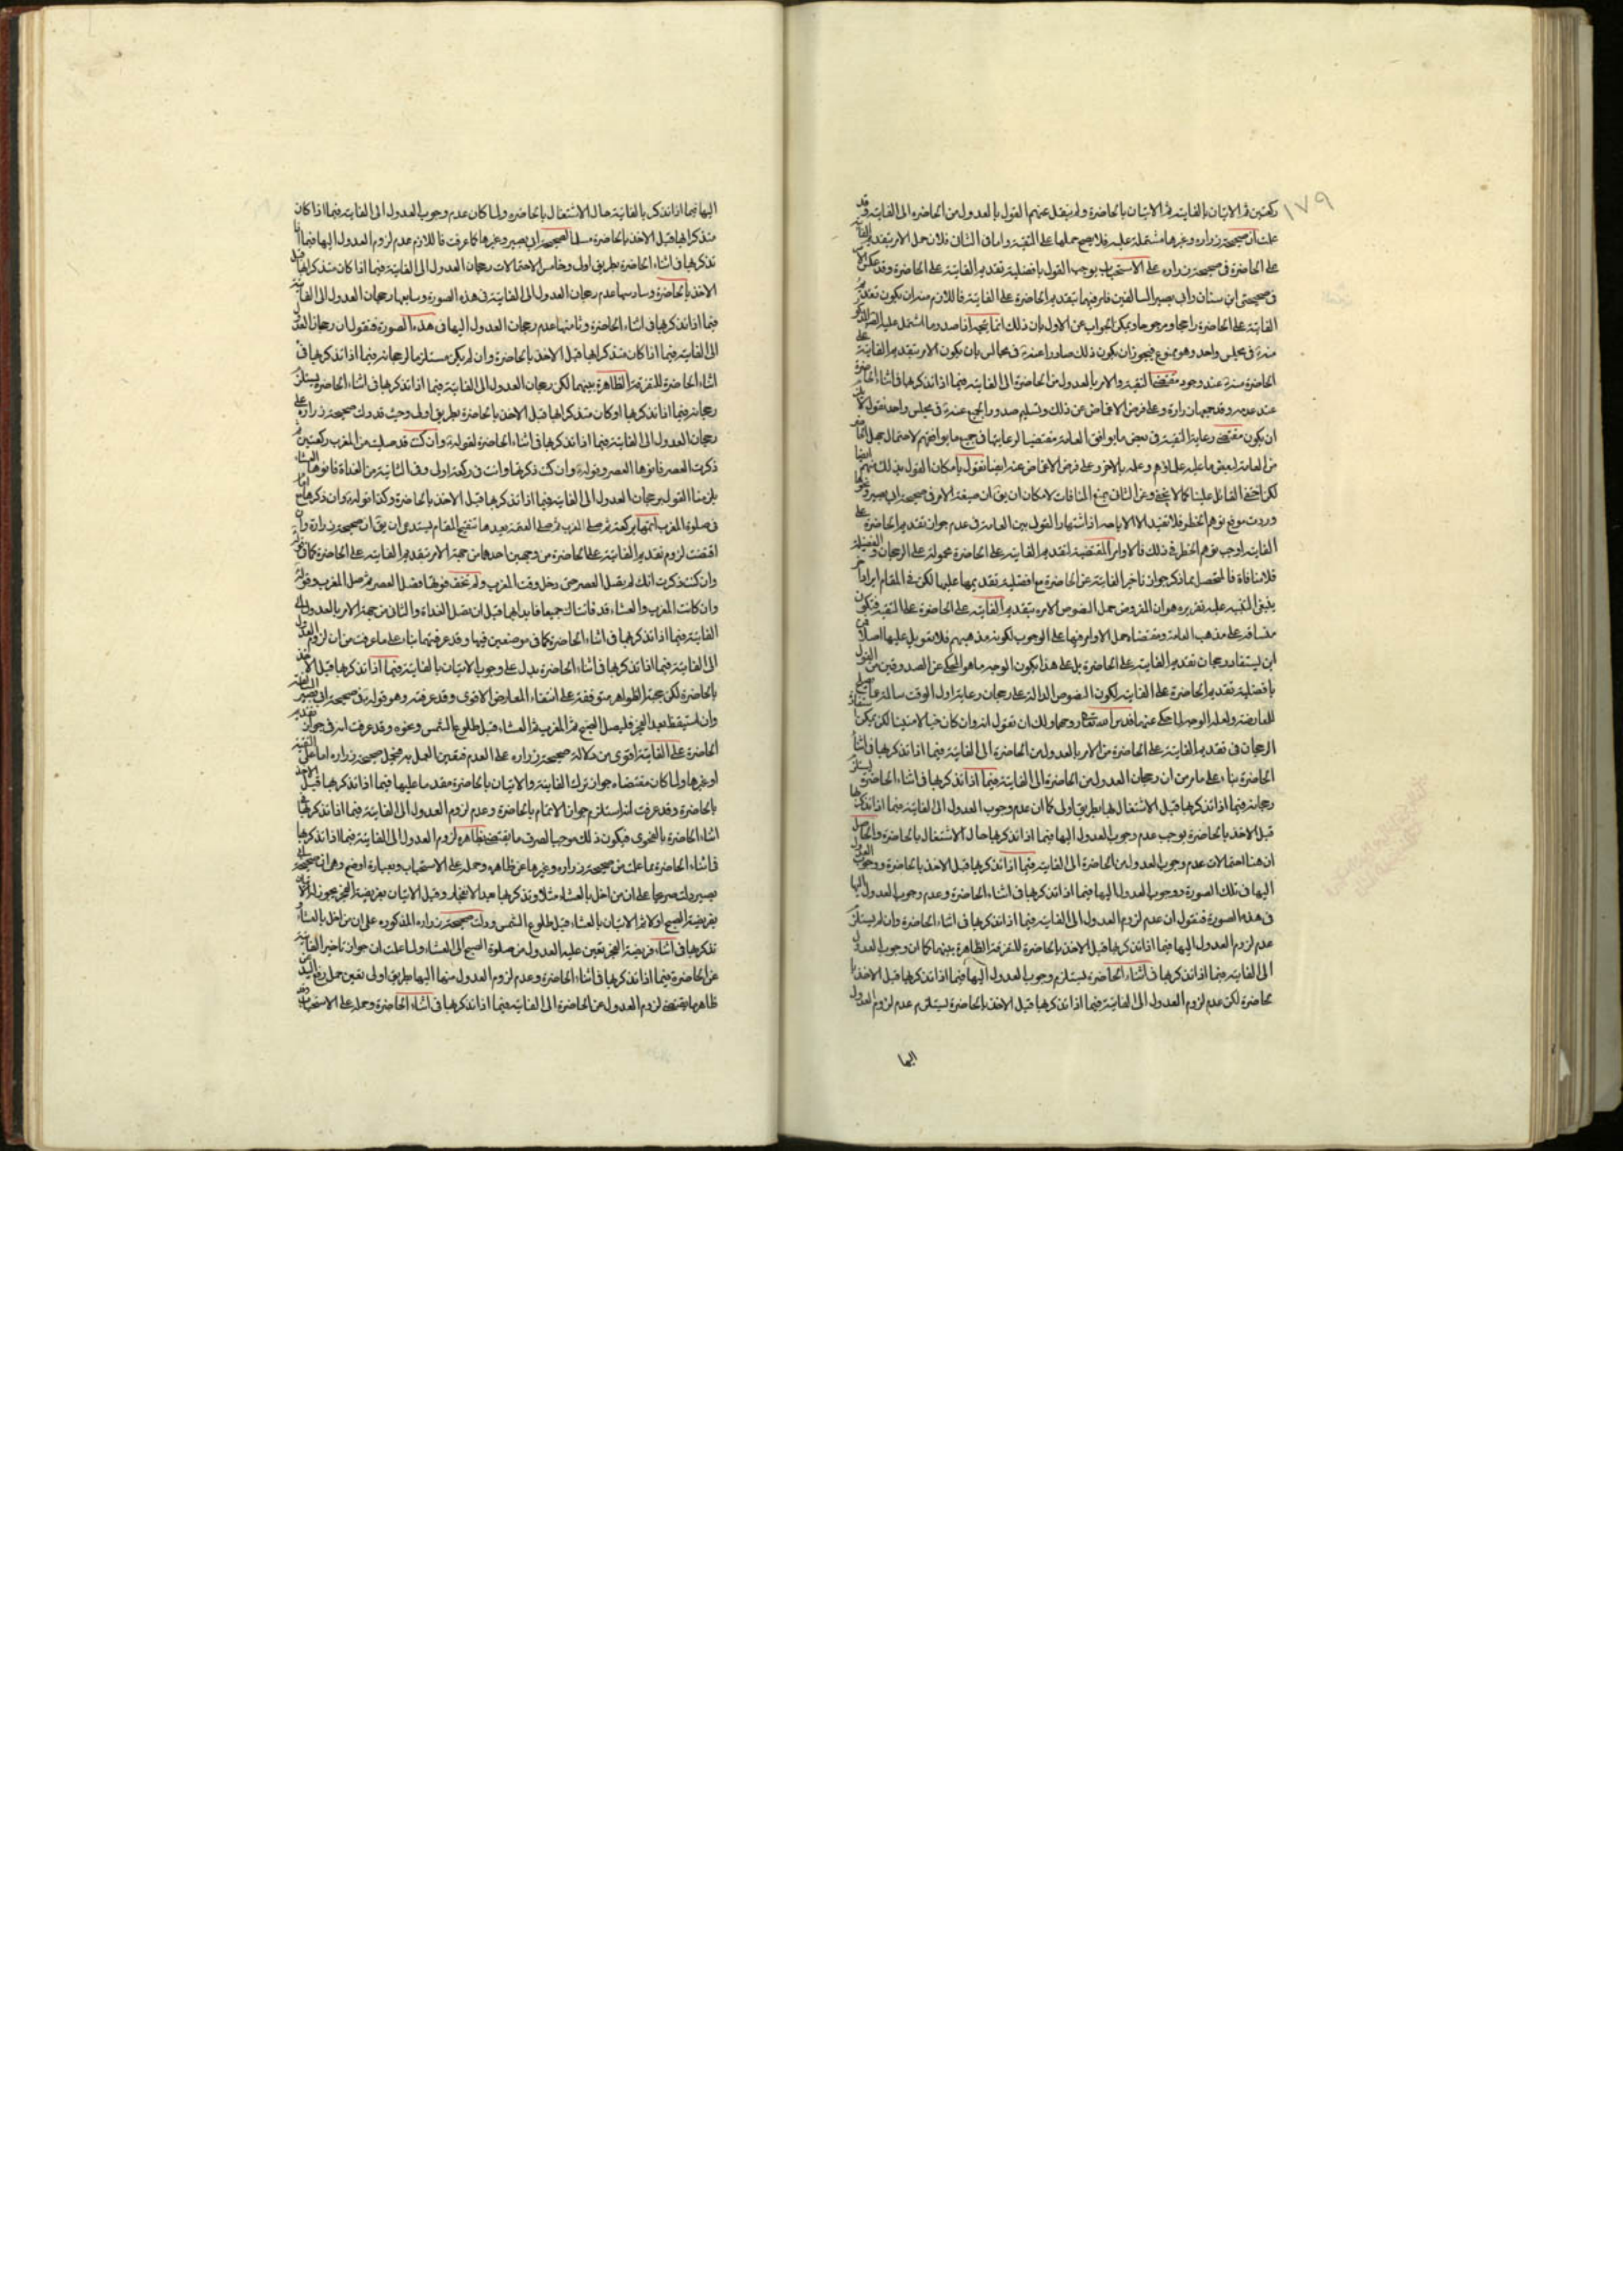 ١٧٩
ركعتين ثم الاتيان بالفايته ثم الاتيان بالحاضرة ولم ينقل عنهم القول بالعدول من الحاضره الى الفايته وقد
علمت ان صحيحة زراره وغيرها مشتملة عليه فلا يصح حملها على التقية واما في الثاني فلان حمل الامر بتقديم الفايتة
على الحاضرة في صحيحة زراره على الاستحباب يوجب القول بافضلية تقديم الفايتة على الحاضرة وقد عكس الامر
في صحيحتي ابن سنان وابي بصير السالفتين فامر فيهما بتقديم الحاضرة على الفايتة فاللازم منه ان يكون تقديم
الفايتة على الحاضرة راجحا ومرجوحا ويمكن الجواب عن الاول بان ذلك انما يتجه اذا صدر ما اشتمل عليه
منه في مجلس واحد وهو ممنوع فيجوز ان يكون ذلك صادرا عنه في مجالس بان يكون الامر بتقديم الفايتة على
الحاضرة منه عند وجود مقتضى التقية والامر بالعدول من الحاضرة الى الفايته فيما اذا تذكرها في اثناء الحاضرة
عند عدمه وعلى فرض الاغماض عن ذلك وتسليم صدور الجميع عنه في مجلس واحد نقول
ان يكون مقتضى رعاية التقية في بعض ما يوافق العامة مقتضيا لرعايتها في جميع ما يوافقهم لاحتمال
من العامة لبعض ما عليه علماؤهم وعلمه بالاخر وعلى فرض الاغماض عنه ايضا نقول بامكان القول بذلك منهم ايضا
لكن اختفى القائل علينا كما لا يخفى وعن الثاني بمنع المنافات لامكان ان يق ان صيغة الامر في صحيحة ابي بصير ونحوها
وردت موقع توهم الحظر فلا تفيد الا الاباحه اذ اشتهار القول بين العامة في عدم جواز تقديم الحاضرة على
الفايته اوجب توهم الحظر في ذلك فالاوامر المقتضية لتقديم الفايته على الحاضرة محمولة على الرجحان والفضيلة
فلا منافاة فالمتحصل مما ذكر جواز تاخير الفايتة عن الحاضرة مع افضلية تقديمها عليها لكن في المقام ايراد اخر
ينبغي التنبيه عليه تقريره هو ان المفروض حمل النصوص الامره بتقديم الفايته على الحاضرة على التقية فتكون
منساقة على مذهب العامة ومقتضاه حمل الاوامر فيها على الوجوب لكونه مذهبهم فلا تعويل عليها اصلا فمن
اين يستفاد رجحان تقديم الفايته على الحاضرة بل على هذا يكون الوجه ما هو المحكي عن الصدوقين من القول
بافضلية تقديم الحاضرة على الفايته لكون النصوص الدالة على رجحان رعاية اول الوقت سالمة عما يصلح
للمعارضة ولعله الوجه لما حكي عنهما قدس الله تعالى روحهما ولك ان تقول انه وان كان خيالا متينا لكن يمكن استفادة
الرجحان في تقديم الفايتة على الحاضرة من الامر بالعدول من الحاضرة الى الفايتة فيما اذا تذكرها في اثناء
الحاضرة بناء على ما مر من ان رجحان العدول من الحاضرة الى الفايتة فيما اذا تذكرها في اثناء الحاضرة يستلزم
رجحانه فيما اذا تذكرها قبل الاشتغال بها بطريق اولى كما ان عدم وجوب العدول الى الفايتة فيما اذا تذكرها
قبل الاخذ بالحاضرة يوجب عدم وجوب العدول اليها فيما اذا تذكرها حال الاشتغال بالحاضرة والحاصل
ان هنا احتمالات عدم وجوب العدول من الحاضرة الى الفايته فيما اذا تذكرها قبل الاخذ بالحاضرة ووجوب العدول
اليها في تلك الصورة ووجوب العدول اليها فيما اذا تذكرها في اثناء الحاضرة وعدم وجوب العدول اليها
في هذه الصورة فنقول ان عدم لزوم العدول الى الفايته فيما اذا تذكرها في اثناء الحاضرة وان لم يستلزم
عدم لزوم العدول اليها فيما اذا تذكرها قبل الاخذ بالحاضرة للتفرقة الظاهرة بينهما كما ان وجوب العدول
الى الفايته فيما اذا تذكرها في اثناء الحاضره يستلزم وجوب العدول اليها فيما اذا تذكرها قبل الاخذ با
لحاضرة لكن عدم لزوم العدول الى الفايتة فيما اذا تذكرها قبل الاخذ بالحاضرة يستلزم عدم لزوم العدول
اليها
اليها فيما اذا تذكر بالفايتة حال الاشتغال بالحاضره ولما كان عدم وجوب العدول الى الفايته فيما اذا كان
متذكرا لها قبل الاخذ بالحاضرة مسلما لصحيحة ابي بصير وغيرها كما عرفت فاللازم عدم لزوم العدول اليها فيما اذا
تذكرها في اثناء الحاضرة بطريق اولى وخامس الاحتمالات رجحان العدول الى الفايتة فيما اذا كان متذكرا لها قبل
الاخذ بالحاضرة وسادسها عدم رجحان العدول الى الفايتة في هذه الصورة وسابعها رجحان العدول الى الفايتة
فيما اذا تذكرها في اثناء الحاضرة وثامنها عدم رجحان العدول اليها في هذه الصورة فنقول ان رجحان العدول
الى الفايته فيما اذا كان متذكرا لها قبل الاخذ بالحاضرة وان لم يكن مستلزما لرجحانه فيما اذا تذكرها في
اثناء الحاضرة للتفرقة الظاهرة بينهما لكن رجحان العدول الى الفايتة فيما اذا تذكرها في اثناء الحاضرة يستلزم
رجحانه فيما اذا تذكرها او كان متذكرا لها قبل الاخذ بالحاضرة بطريق اولى وحيث قد دلت صحيحة زراره على
رجحان العدول الى الفايتة فيما اذا تذكرها في اثناء الحاضرة لقوله وان كنت قد صليت من المغرب ركعتين ثم
ذكرت العصر فانوها العصر وقوله وان كنت ذكرتها وانت في ركعة اولى وفي الثانية من الغداة فانوها العشاء
يلزمنا القول برجحان العدول الى الفايتة فيما اذا تذكرها قبل الاخذ بالحاضرة وكذا قوله وان ذكرها مع امام
في صلوة المغرب اتمها بركعة ثم صلى المغرب ثم صلى العتمة بعدها تنقيح المقام يستدعي ان يق ان صحيحة زرارة وان
اقتضت لزوم تقديم الفايتة على الحاضرة من وجهين احدهما من جهة الامر بتقديم الفايته على الحاضرة كما في قوله
وان كنت ذكرت انك لم تصل العصر حتى دخل وقت المغرب ولم تخف فوتها فصل العصر ثم صل المغرب وقوله
وان كانت المغرب والعشاء قد فاتتاك جميعا فابدا بهما قبل ان تصل الغداة والثاني من جهة الامر بالعدول الى
الفايتة فيما اذا تذكرها في اثناء الحاضرة كما في موضعين فيها وقد عرفتهما بناء على ما عرفت من ان لزوم العدول
الى الفايتة فيما اذا تذكرها في اثناء الحاضرة يدل على وجوب الاتيان بالفايتة فيما اذا تذكرها قبل الاخذ
بالحاضرة لكن حجية الظواهر متوقفة على انتفاء المعارض الاقوى وقد عرفته وهو قوله في صحيحة ابي بصير
وان استيقظ بعد الفجر فليصل الصبح ثم المغرب ثم العشاء قبل طلوع الشمس ونحوه وقد عرفت انه في جواز تقديم
الحاضرة على الفايتة اقوى من دلالة صحيحة زراره على العدم فيتعين العمل به فتحمل صحيحة زراره اما على التقية
او غيرها ولما كان مقتضاه جواز ترك الفايتة والاتيان بالحاضرة مقدما عليها فيما اذا تذكرها قبل الاخذ
بالحاضرة وقد عرفت انه استلزم جواز الاتمام بالحاضرة وعدم لزوم العدول الى الفايتة فيما اذا تذكرها في
اثناء الحاضرة بالفحوى فيكون ذلك موجبا لصرف ما يقتضي بظاهره لزوم العدول الى الفايتة فيما اذا تذكرها
في اثناء الحاضرة مما علمت من صحيحة زراره وغيرها عن ظاهره وحمله على الاستحباب وبعبارة اوضح وهي ان صحيحة ابي
بصير دلت صريحا على ان من اخل بالعشاء مثلا وتذكرها بعد الانفجار وقبل الاتيان بفريضة الفجر يجوز له الاتيان
بفريضة الصبح اولا ثم الاتيان بالعشاء قبل طلوع الشمس ودلت صحيحة زراره المذكوره على ان من اخل بالعشاء
تذكرها في اثناء فريضة الفجر تعين عليه العدول من صلوة الصبح الى العشاء ولما علمت ان جواز تاخير الفايتة
عن الحاضرة فيما اذا تذكرها في اثناء الحاضرة وعدم لزوم العدول منها اليها بطريق اولى تعين حمل
ظاهر ما يقتضي لزوم العدول عن الحاضرة الى الفايتة فيما اذا تذكرها في اثناء الحاضرة وحمله على الاستحباب